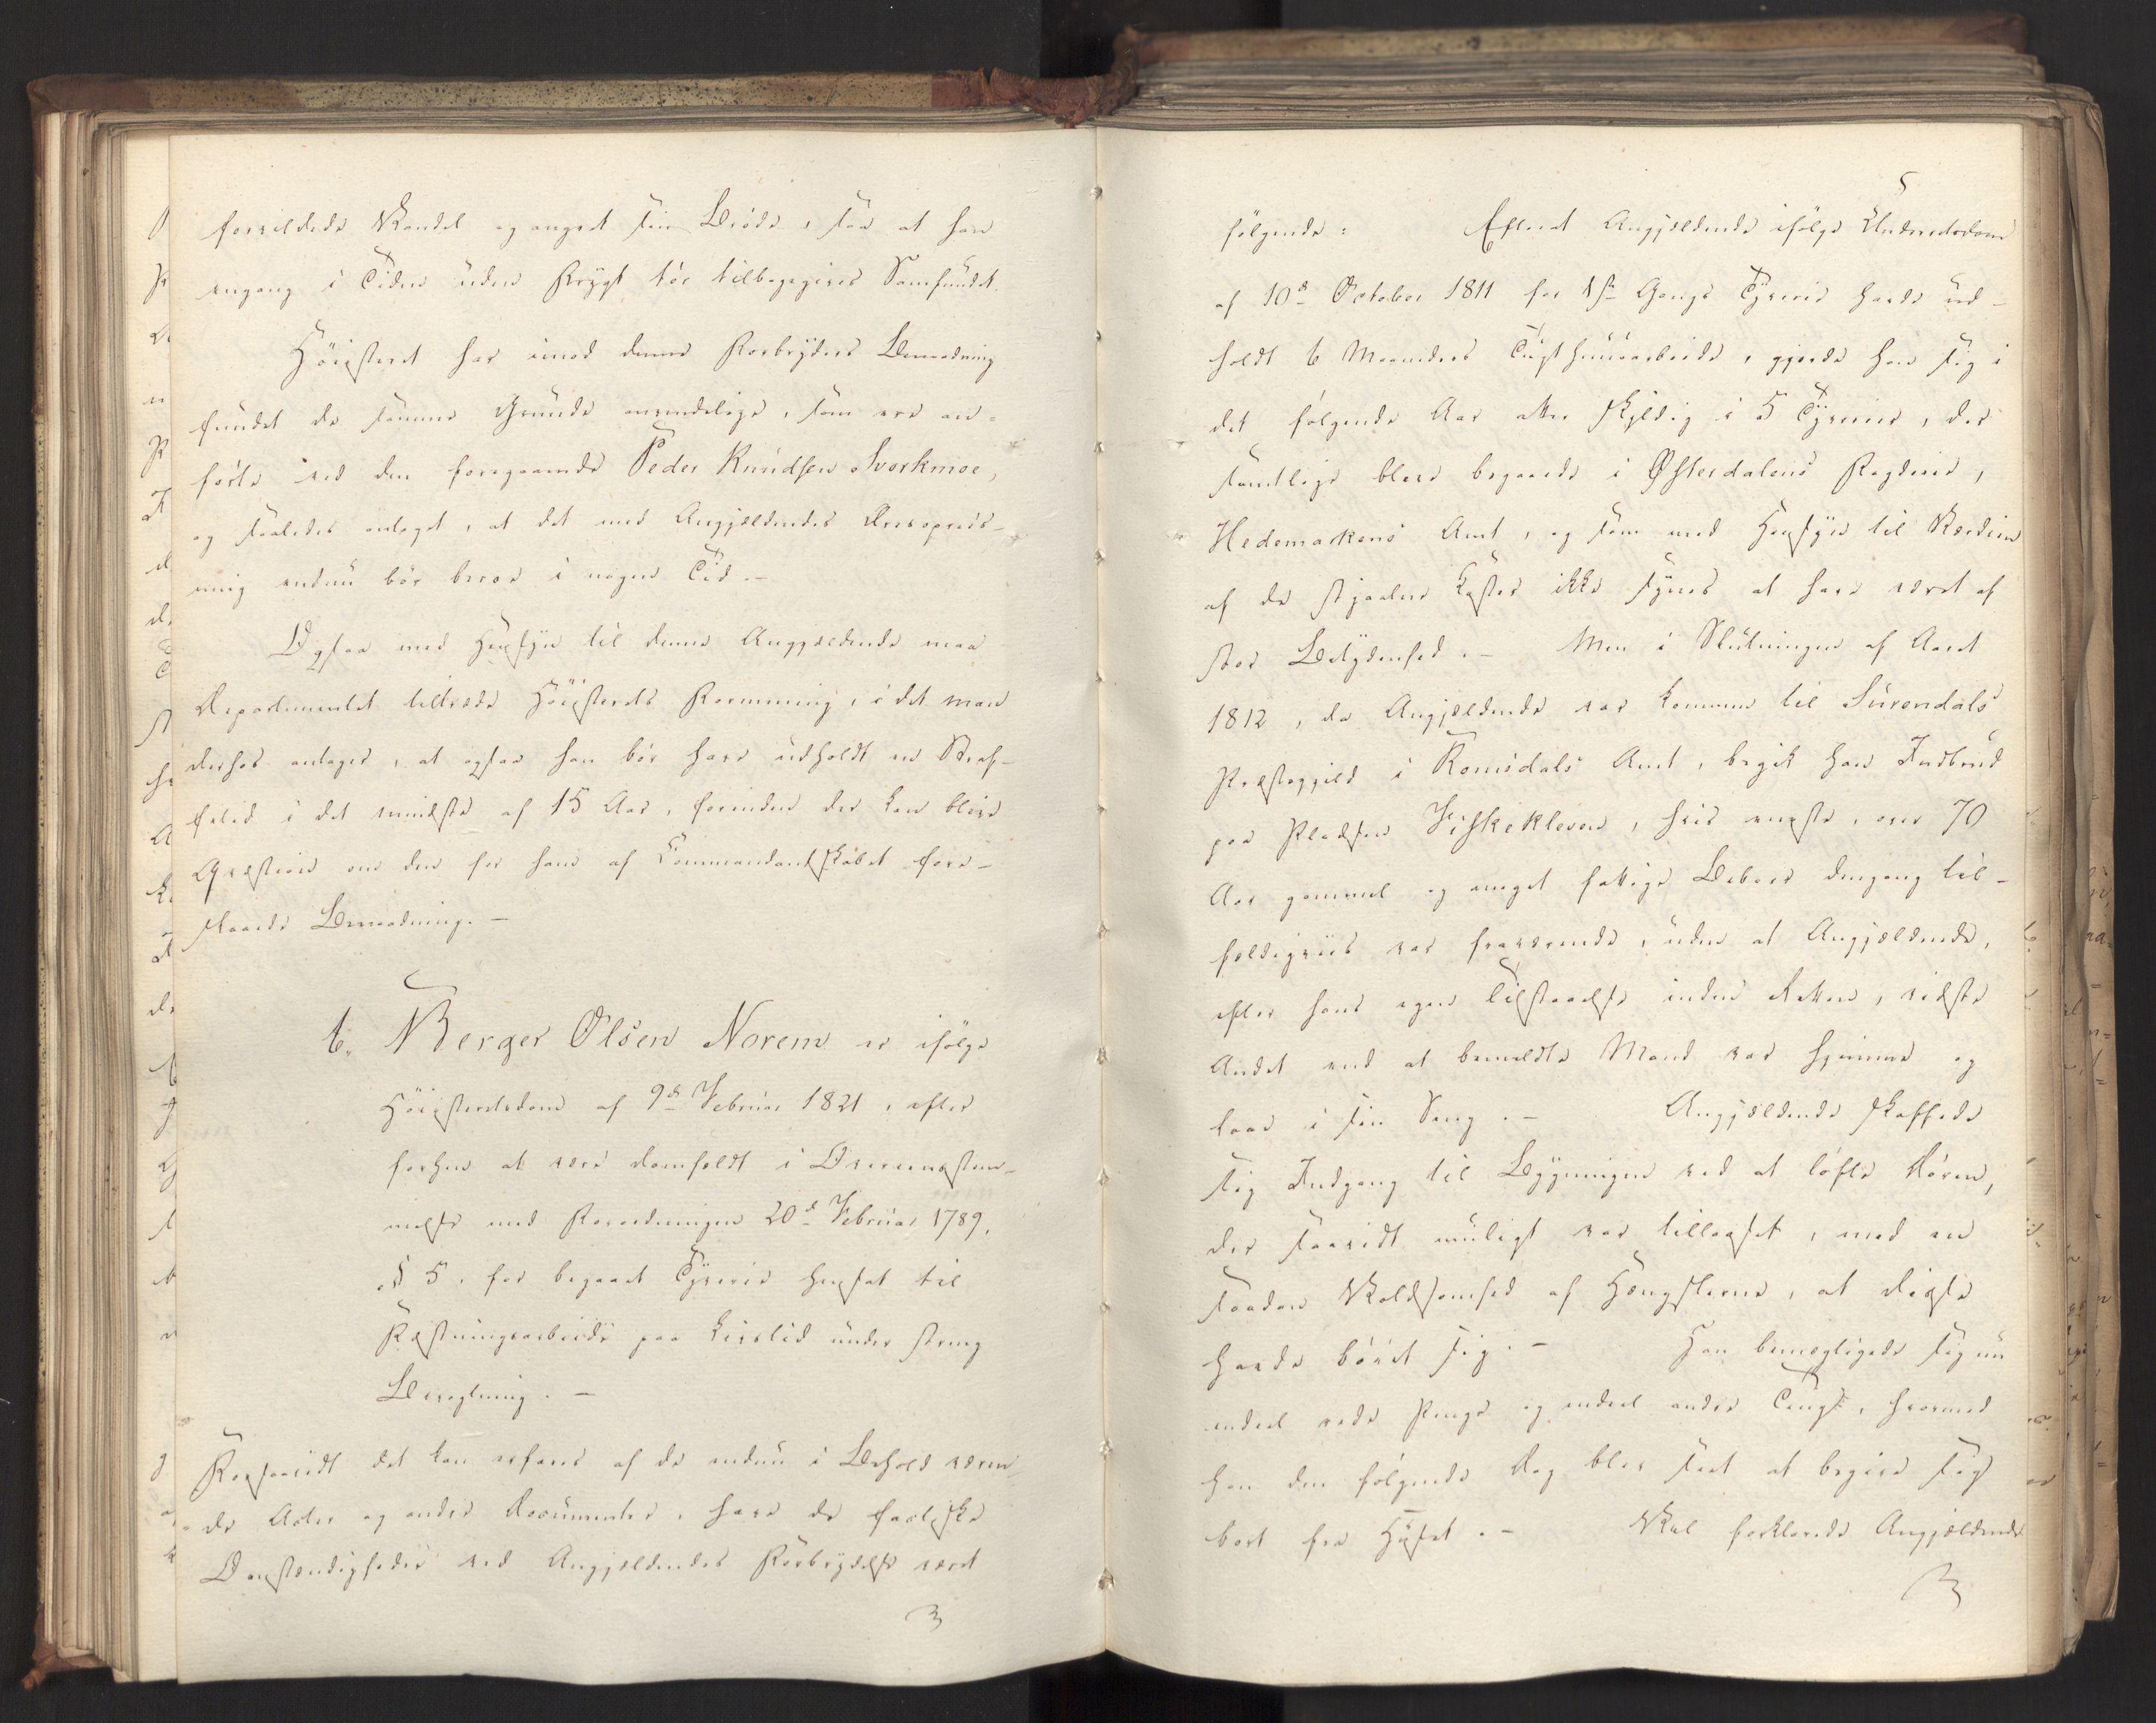 forvildede Vandel og angret sin Brøde, saa at han
engang i Tiden uden Frygt tør tilbagegives Samfundet.
Høiesteret har imod denne Forbryders Benaadning
fundet de samme Grunde anvendelige, som ere an-
førte ved den foregaaende Peder Knudsen Svorkmoe,
og saaledes antaget, at det med Angjældendes Preveopreis-
ning endnu bør beroe i nogen Tid.-
Ogsaa med Hensyn til denne Angjældende maa
Departementet tiltræde Høiesterets Formening, i det man
derhos antager, at ogsaa han bør have udholdt en Straf-
fetid i det mindste af 15 Aar, forinden der kan blive
Qvæstion om den for ham af Commandantskabet fore-
slaaede Benaadning. -
6. Berger Olsen Norem er ifølge
Høiesteretsdom af 9de Februar 1821, efter
forhen at være domfældt i Overeensstem-
melse med Forordningen 20de Februar 1789,
§ 5, for begaaet Tyverie hensat til
Fæstningsarbeide paa Livstid under streng
Bevogtning. -
Forsaavidt det kan erfares af de endnu i Behold væren-
de Acter og andre Documenter, have de factiske
Omstændigheder ved Angjældendes Forbrydelse været
5
følgende: Efterat Angjældende ifølge Underretsdom
af 10de October 1811 for 1ste Gangs Tyverie havde ud-
holdt 6 Maaneders Tugthuusarbeide, gjorde han sig i
det følgende Aar atter skyldig i 5 Tyverier, der
samtlige bleve begaaede i Østerdalens Fogderie,
Hedemarkens Amt, og som med Hensyn til Værdien
af de stjaalne Koster ikke synes at have været af
stor Betydenhed. - Men i Slutningen af Aaret
1812, da Angjældende var kommen til Surendals
Præstegjeld i Romsdals Amt, begik han Indbrud
paa Pladsen Fiskekleven, hvis eneste, over 70
Aar gammel og meget fattige Beboer dengang til-
fældigviis var fraværende, uden at Angjældende,
efter hans egen Tilstaaelse inden Retten, vidste
Andet end at bemeldte Mand var hjemme og
laae i sin Seng. - Angjældende skaffede
sig Indgang til Bygningen ved at løfte Døren,
der saavidt muligt var tillaaset, med en
saadan Voldsomhed af Hængslerne, at disse
havde bøiet sig. - Han bemægtigede sig nu
endeel rede Penge og endeel andre Ting, hvormed
han den følgende Dag blev seet at begive sig
bort fra Huset. - Vel forklarede Angjældende